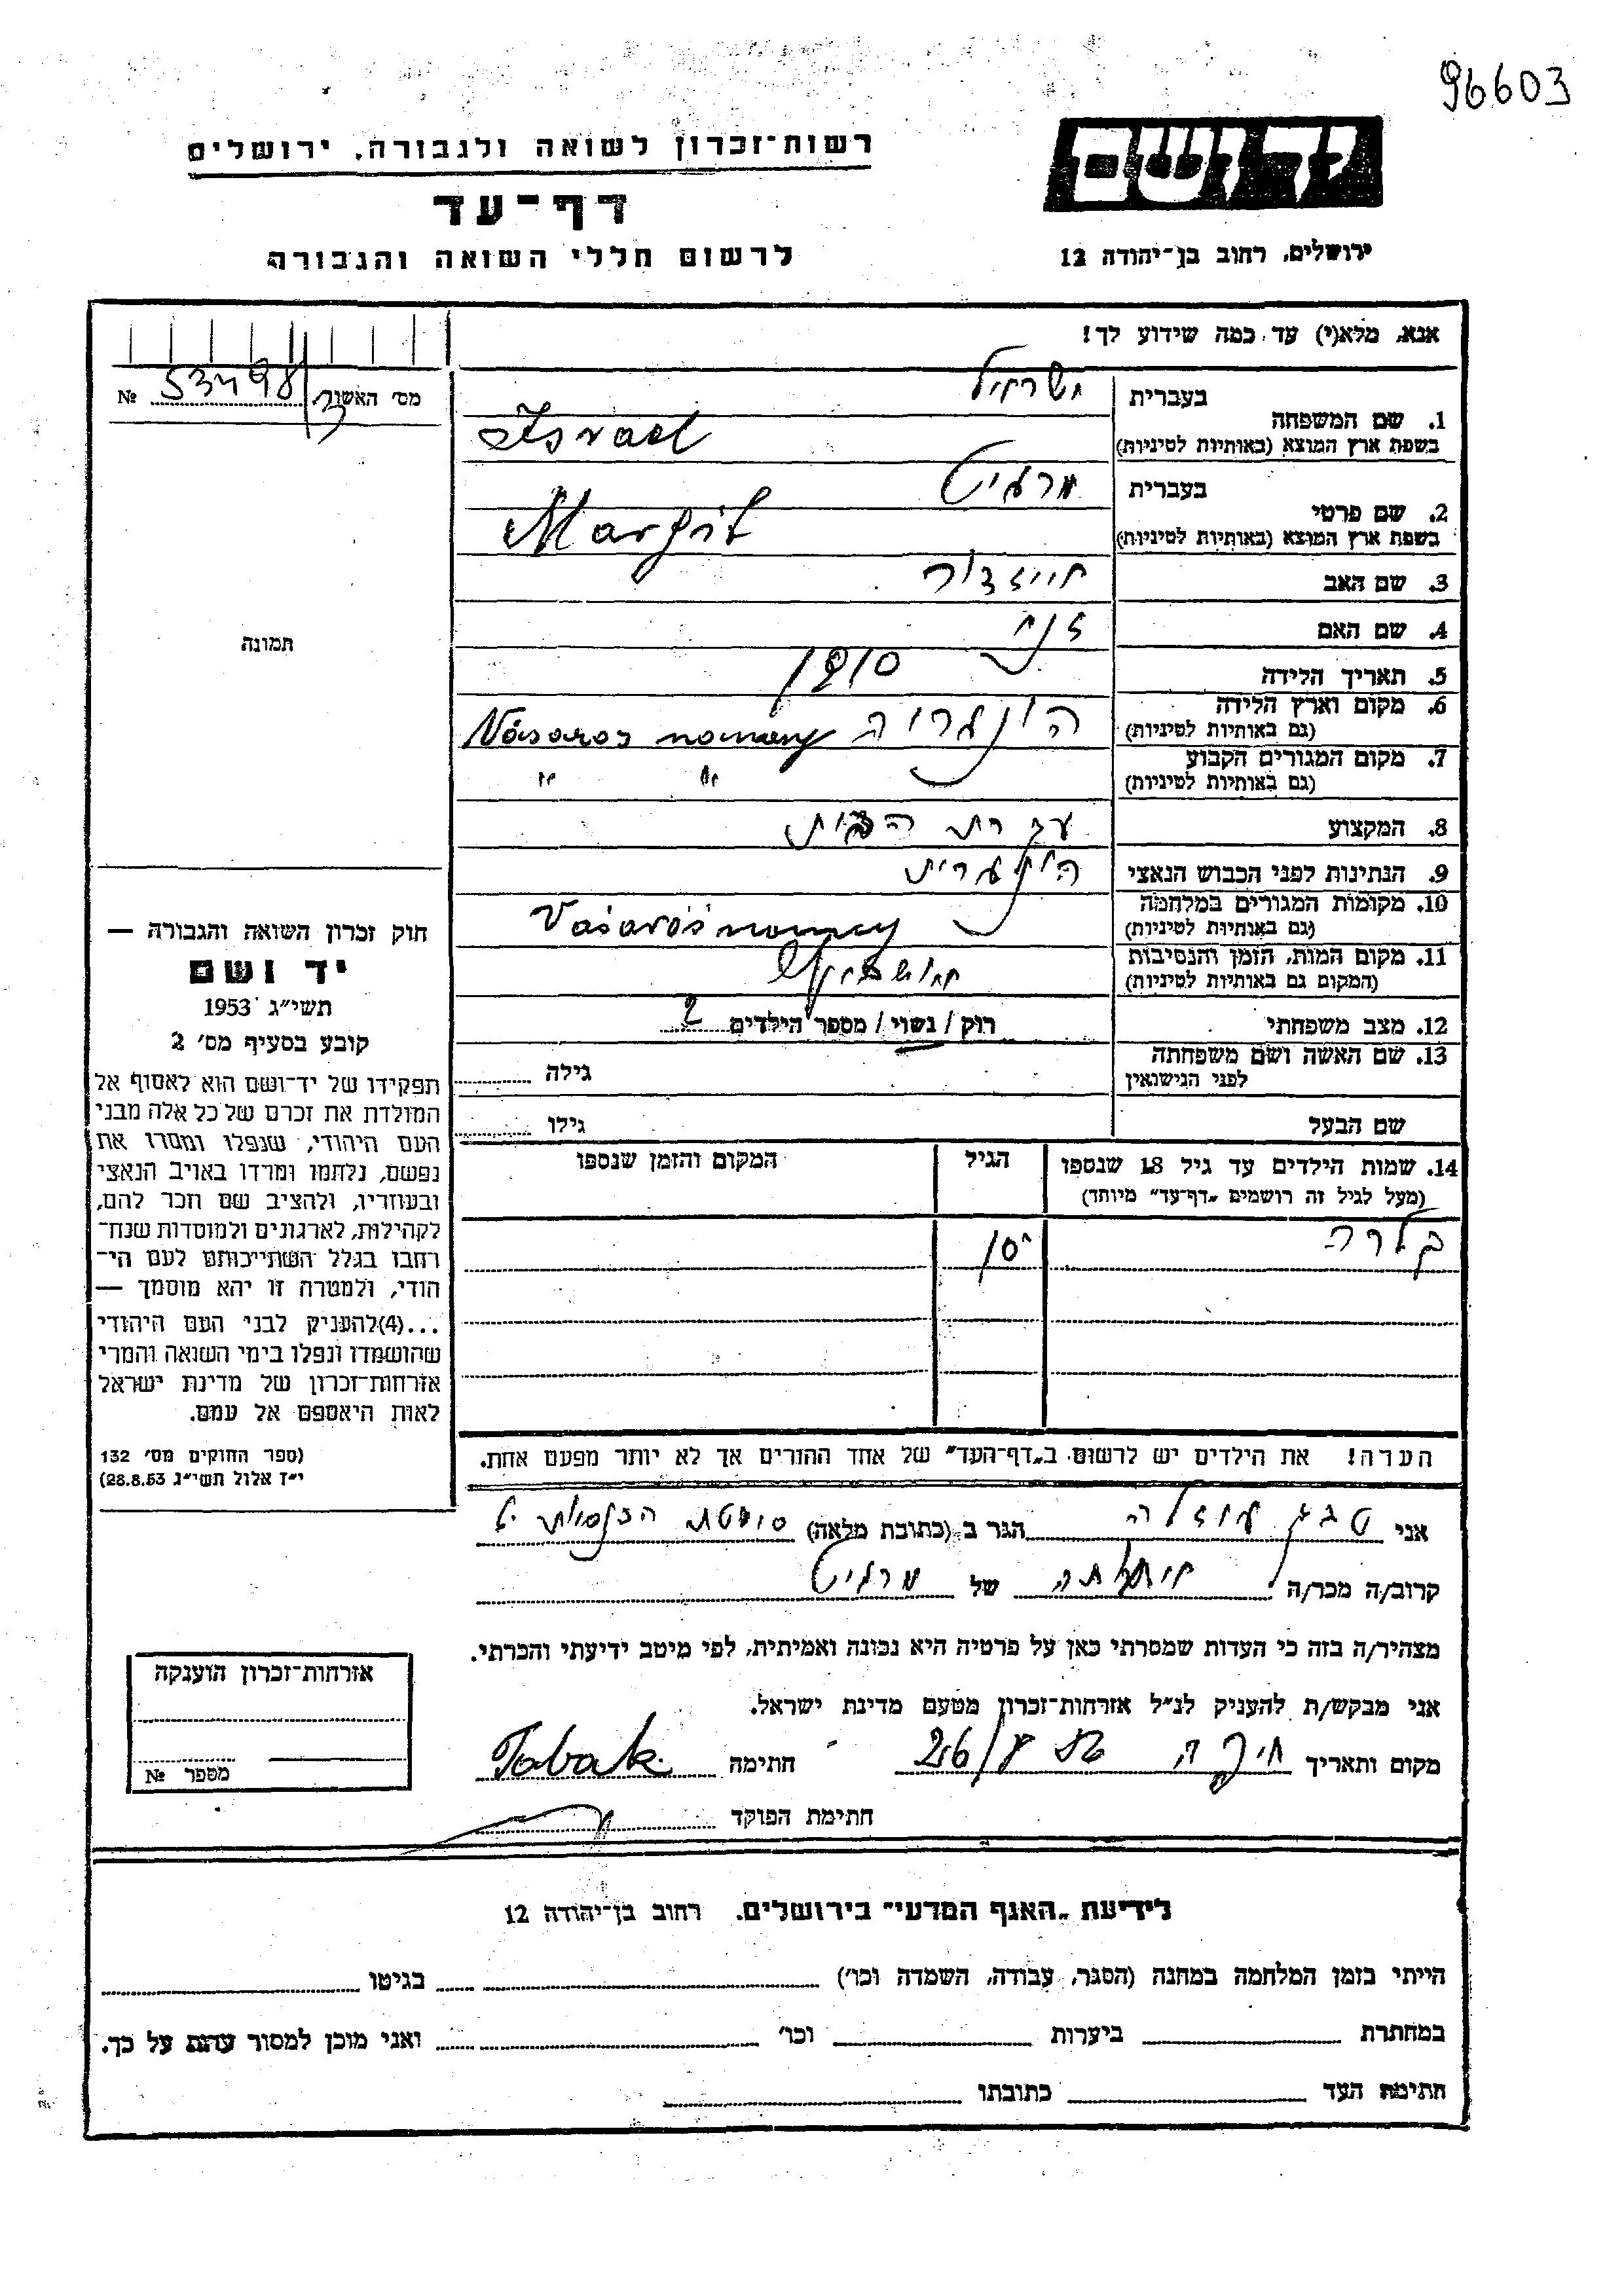 96603
יד ושם
רשות־זכרון לשואה ולגבורה, ירושלים
דף־עד
לרשום חללי השואה והגבורה
ירושלים, רחוב בן־יהודה 12
אנא, מלא(י) עד כמה שידוע לך!
מס׳ האשור №
1. שם המשפחה בעברית ישראל
בשפת ארץ המוצא (באותיות לטיניות) Israel
2. שם פרטי בעברית מרגיט
בשפת ארץ המוצא (באותיות לטיניות) Margit
3. שם האב
4. שם האם
5. תאריך הלידה 1910
6. מקום וארץ הלידה הונגריה Vásaros namény
(גם באותיות לטיניות)
7. מקום המגורים הקבוע " "
(גם באותיות לטיניות)
8. המקצוע עקרת הבית
9. הנתינות לפני הכבוש הנאצי הונגרית
10. מקומות המגורים במלחמה Vásárosnamény
(גם באותיות לטיניות)
11. מקום המות, הזמן והנסיבות אושוויץ
(המקום גם באותיות לטיניות)
12. מצב משפחתי רוק / נשוי / מספר הילדים 2
13. שם האשה ושם משפחתה גילה
לפני הנישואין
שם הבעל גילו
14. שמות הילדים עד גיל 18 שנספו הגיל המקום והזמן שנספו
(מעל לגיל זה רושמים „דף־עד״ מיוחד)
קלרה 10
הערה! את הילדים יש לרשום ב„דף־העד״ של אחד ההורים אך לא יותר מפעם אחת.
תמונה
חוק זכרון השואה והגבורה —
יד ושם
תשי״ג 1953
קובע בסעיף מס׳ 2
תפקידו של יד־ושם הוא לאסוף אל
המולדת את זכרם של כל אלה מבני
העם היהודי, שנפלו ומסרו את
נפשם, נלחמו ומרדו באויב הנאצי
ובעוזריו, ולהציב שם וזכר להם,
לקהילות, לארגונים ולמוסדות שנח־
רבו בגלל השתייכותם לעם הי־
הודי, ולמטרה זו יהא מוסמך —
...(4) להעניק לבני העם היהודי
שהושמדו ונפלו בימי השואה והמרי
אזרחות־זכרון של מדינת ישראל
לאות היאספם אל עמם.
(ספר החוקים מס׳ 132
י״ז אלול תשי״ג 28.8.53)
אני טבק הגר ב (כתובת מלאה)
קרוב/ה מכר/ה של מרגיט
מצהיר/ה בזה כי העדות שמסרתי כאן על פרטיה היא נכונה ואמיתית, לפי מיטב ידיעתי והכרתי.
אני מבקש/ת להעניק לנ״ל אזרחות־זכרון מטעם מדינת ישראל.
מקום ותאריך חיפה חתימה Tabak
חתימת הפוקד
אזרחות־זכרון הוענקה
מספר №
לידיעת „האגף המדעי״ בירושלים, רחוב בן־יהודה 12
הייתי בזמן המלחמה במחנה (הסגר, עבודה, השמדה וכו׳) בגיטו
במחתרת ביערות וכו׳ ואני מוכן למסור עדות על כך.
חתימת העד כתובתו